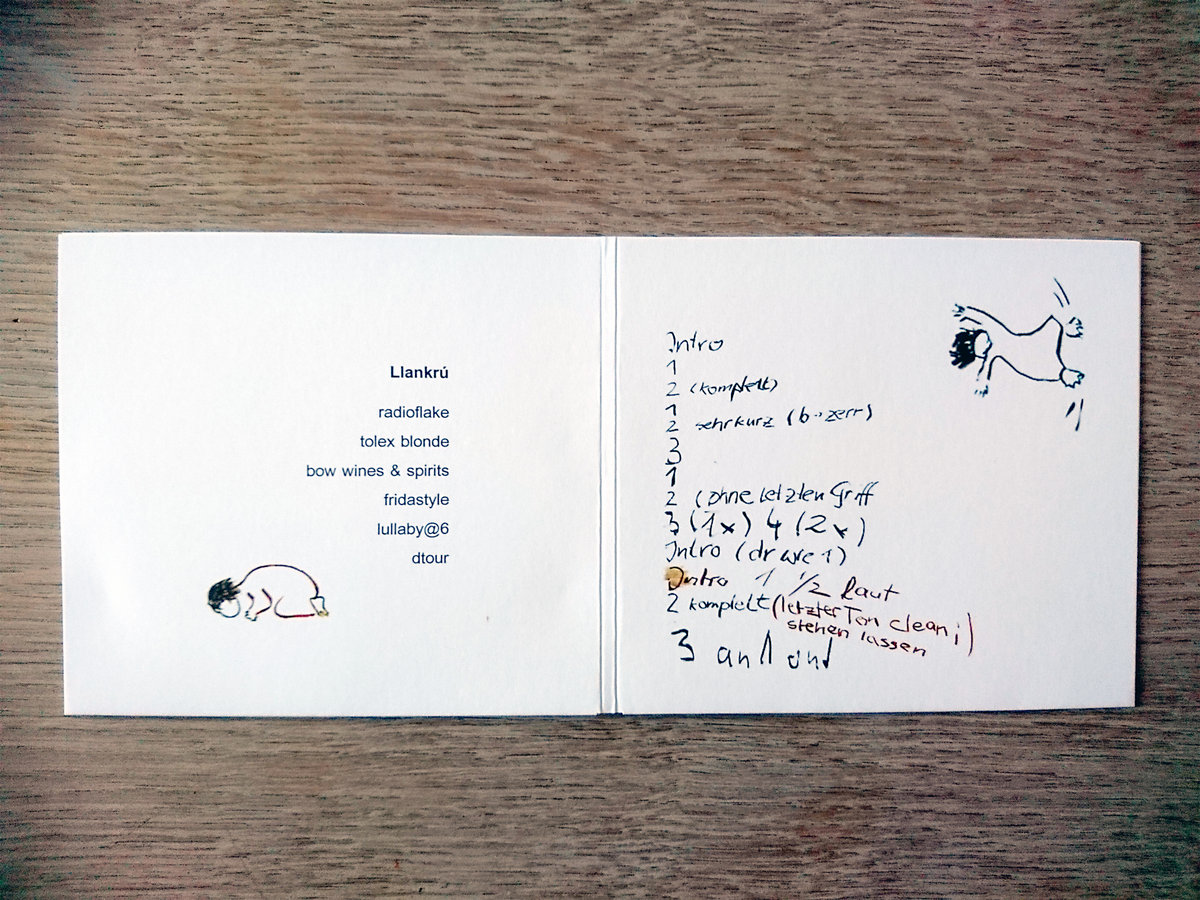 Llankrú
radioflake
tolex blonde
bow wines & spirits
fridastyle
lullaby@6
dtour
Intro
1
2 (komplett)
1
2 sehr kurz (b zerr)
3
3
1
2 (ohne letzten Griff
3 (1x) 4 (2x)
Intro (dr wie 1)
Intro 1 1/2 laut
2 komplett (letzter Ton clean
stehen lassen)
3 und